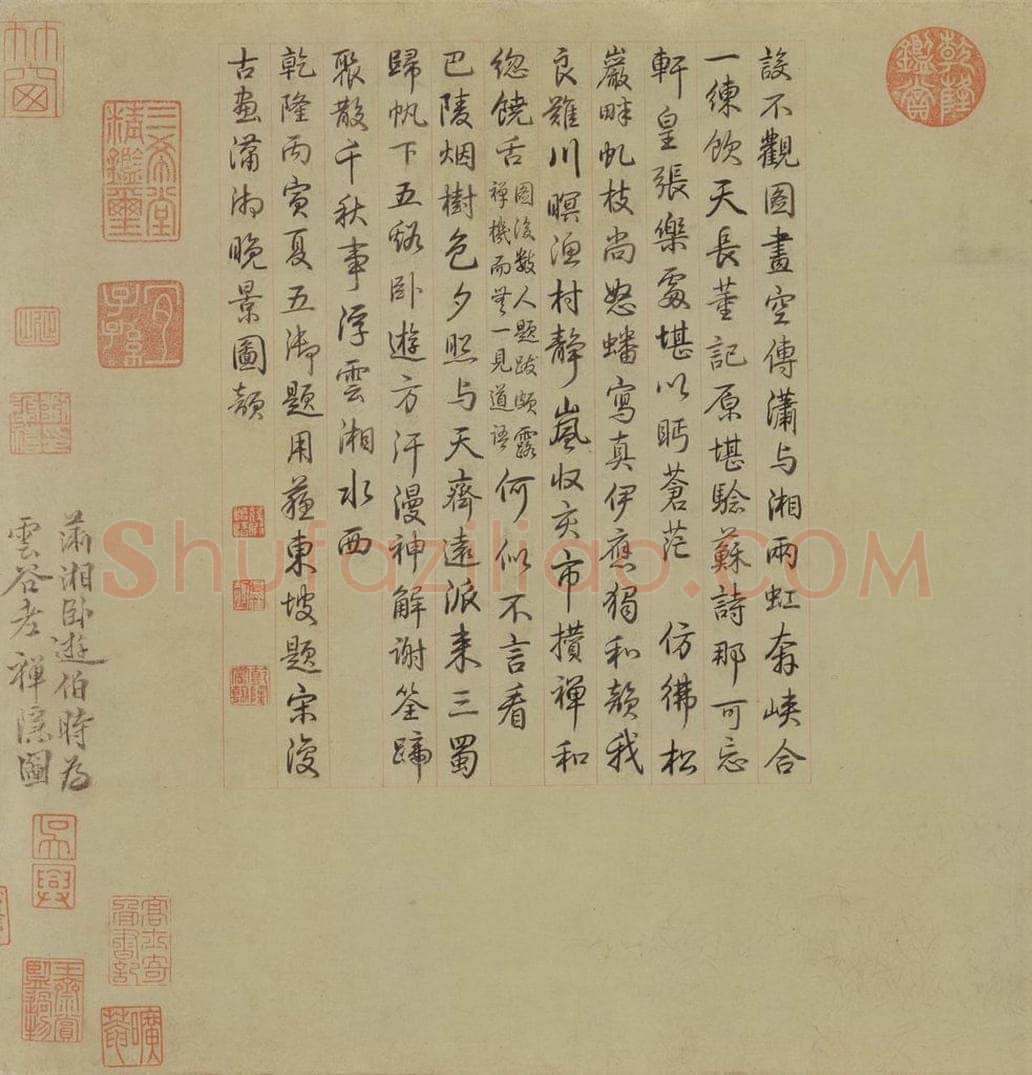 乾隆鑑賞
設不觀圖畫空傳瀟与湘兩虹奔峽合
一練飲天長董記原堪驗蘇詩那可忘
軒皇張樂處堪以眄蒼茫 仿彿松
巖畔虬枝尚怒蟠寫真伊應獨和韻我
良難川暝漁村静嵐收亥市攢禪和
緫饒舌圖後數人題跋頗露禪機而無一見道語何似不言看
巴陵烟樹色夕照与天齊遠派来三蜀
歸帆下五谿卧遊方汗漫神解谢筌蹄
聚散千秋事浮雲湘水西
乾隆丙寅夏五御題用蘓東坡題宋復
古畫瀟湘晚景圖韻
三希堂精鑑璽
宜子孫
瀟湘卧遊伯時為
雲谷老禪隱圖
Shufaziliao.COM